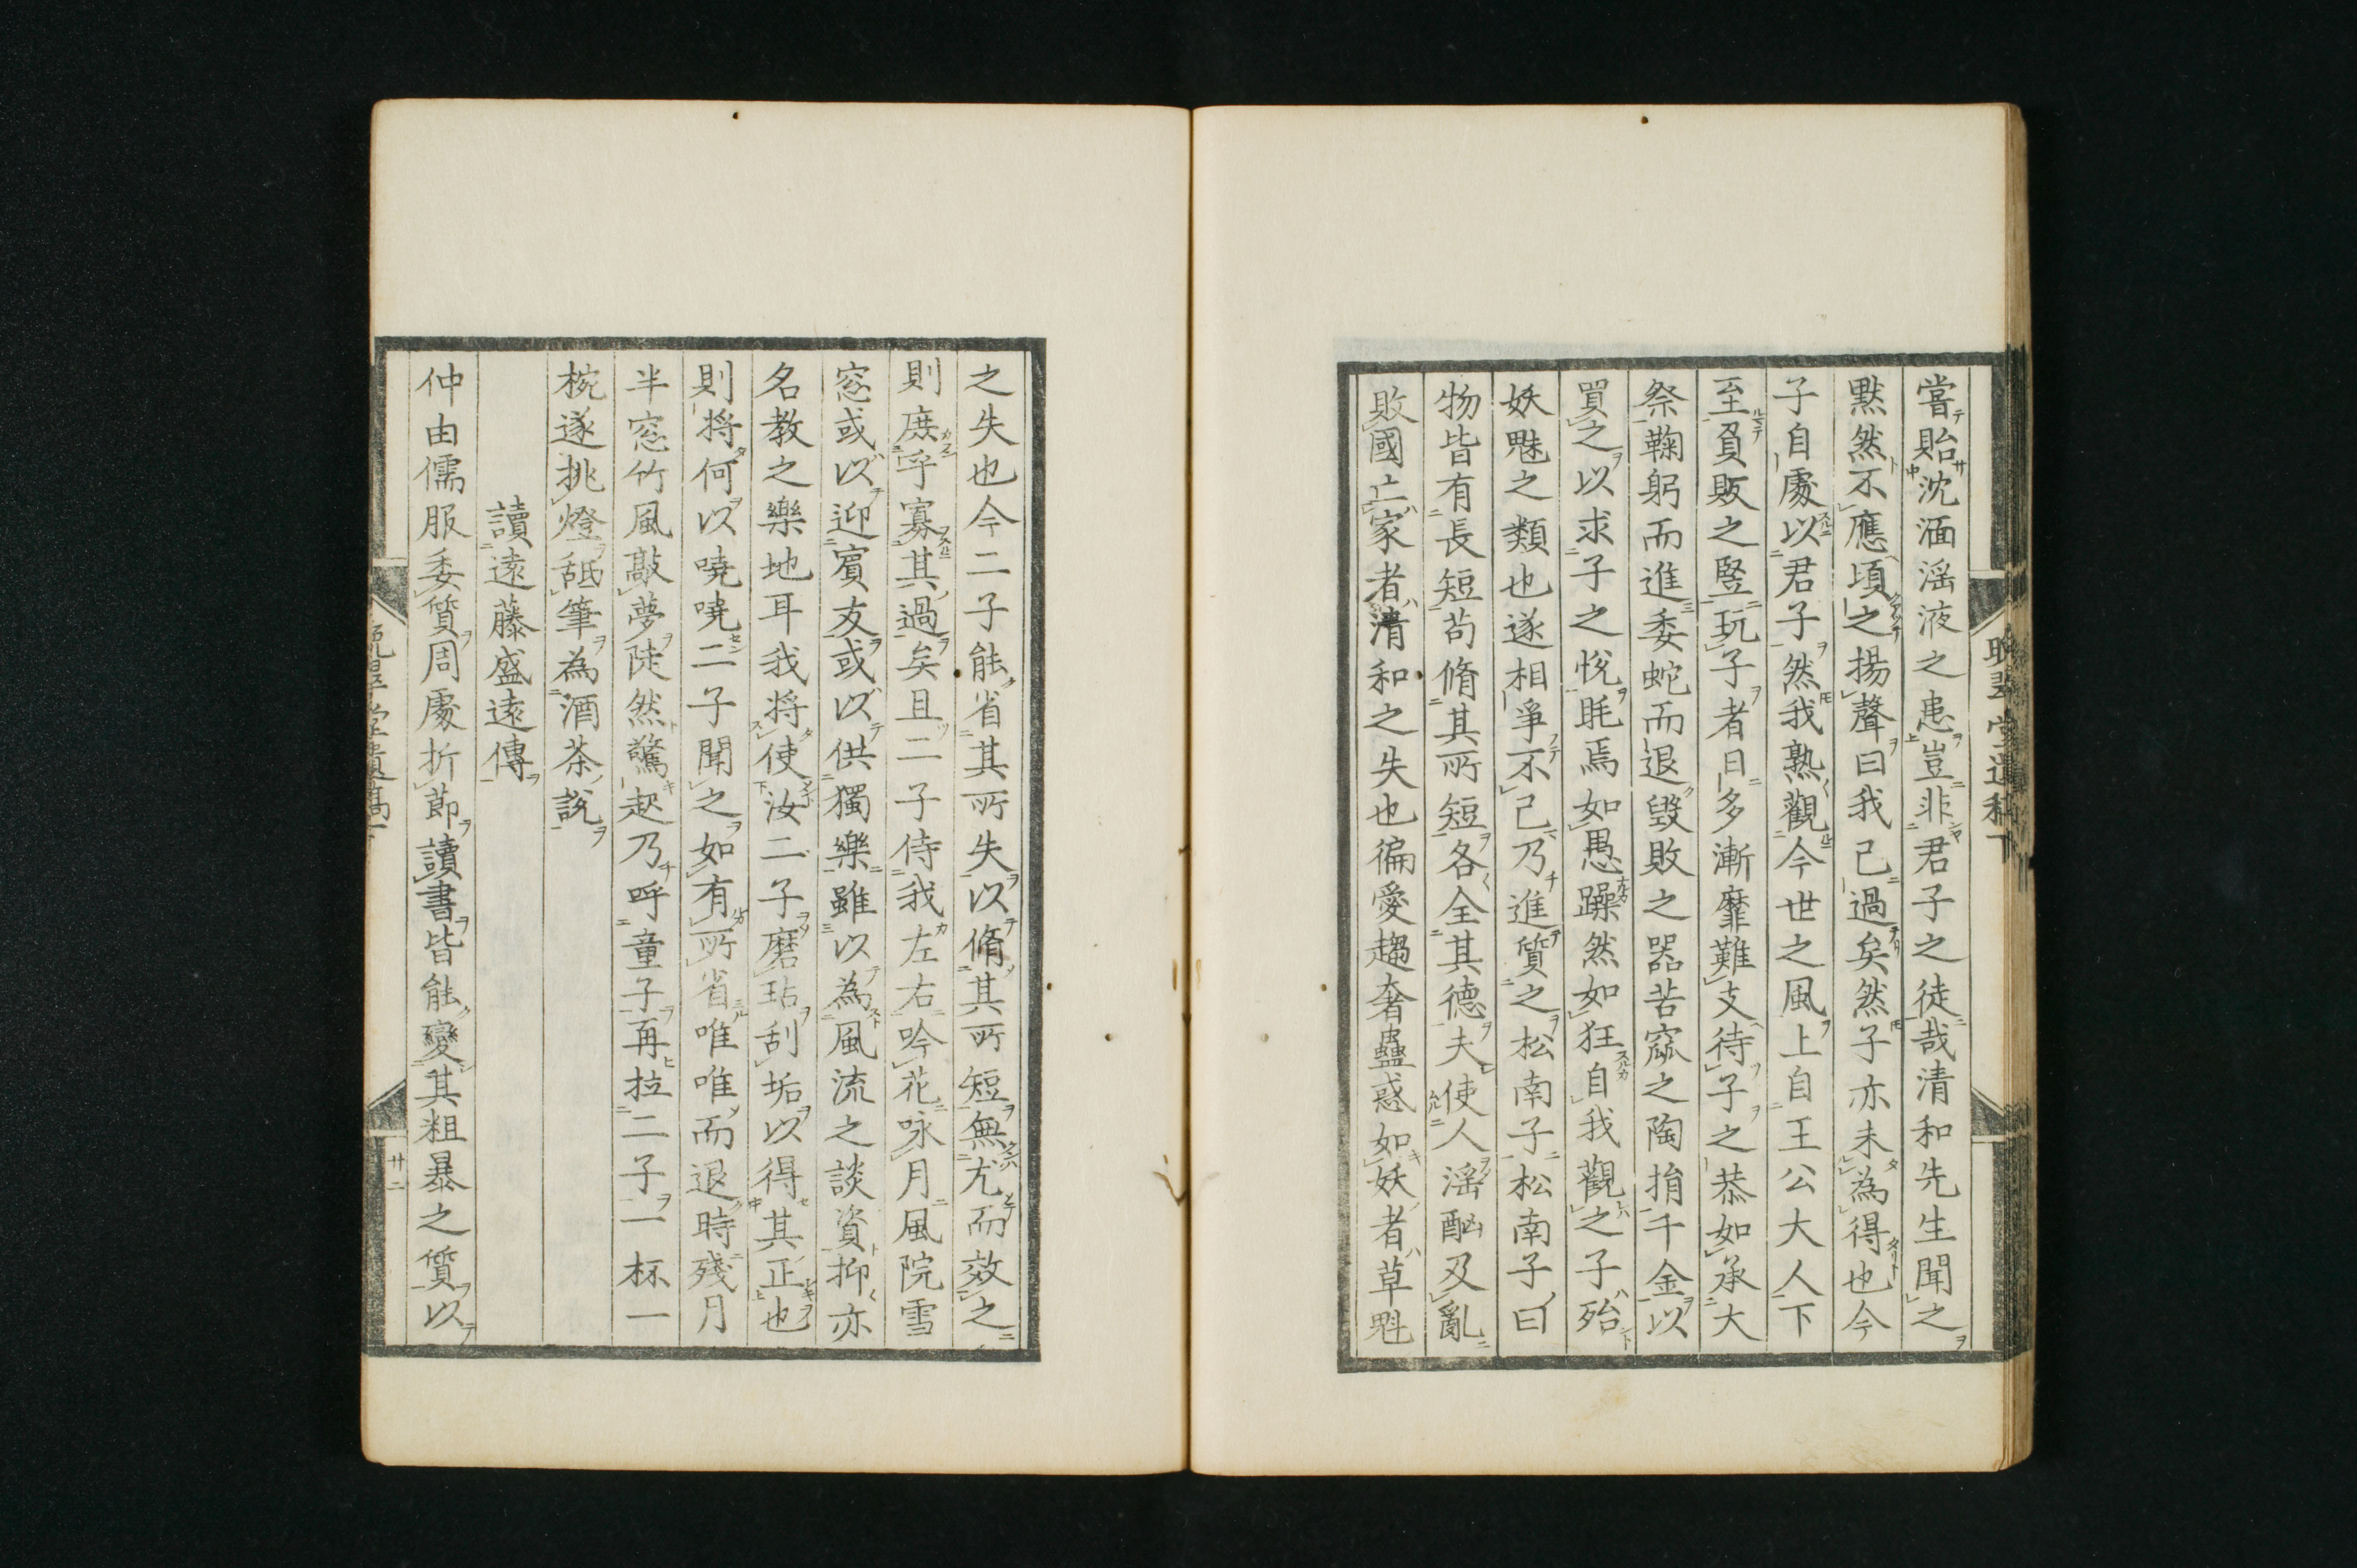 嘗貽沈湎淫液之患豈非君子之徒哉清和先生聞之
黙然不應頃之揚聲曰我已過矣然子亦未為得也今
子自處以君子然我熟觀今世之風上自王公大人下
至負販之豎玩子者日多漸靡難支待子之恭如承大
祭鞠躬而進委蛇而退毀敗之器苦窳之陶捐千金以
買之以求子之悅眊焉如愚躁然如狂自我觀之子殆
妖魅之類也遂相爭不已乃進質之松南子松南子曰
物皆有長短苟脩其所短各全其德夫使人淫酗及亂
敗國亡家者清和之失也徧愛趨奢蠱惑如妖者草魁
之失也今二子能省其所失以脩其所短無尤而效之
則庶乎寡其過矣且二子侍我左右吟花咏月風院雪
窓或以迎賓友或以供獨樂雖以為風流之談資抑亦
名教之樂地耳我將使汝二子磨玷刮垢以得其正也
則將何以嘵嘵二子聞之如有所省唯唯而退時殘月
半窓竹風敲夢陡然驚起乃呼童子再拉二子一杯一
椀遂挑燈舐筆為酒茶說
讀遠藤盛遠傳
仲由儒服委質周處折節讀書皆能變其粗暴之質以
廿二